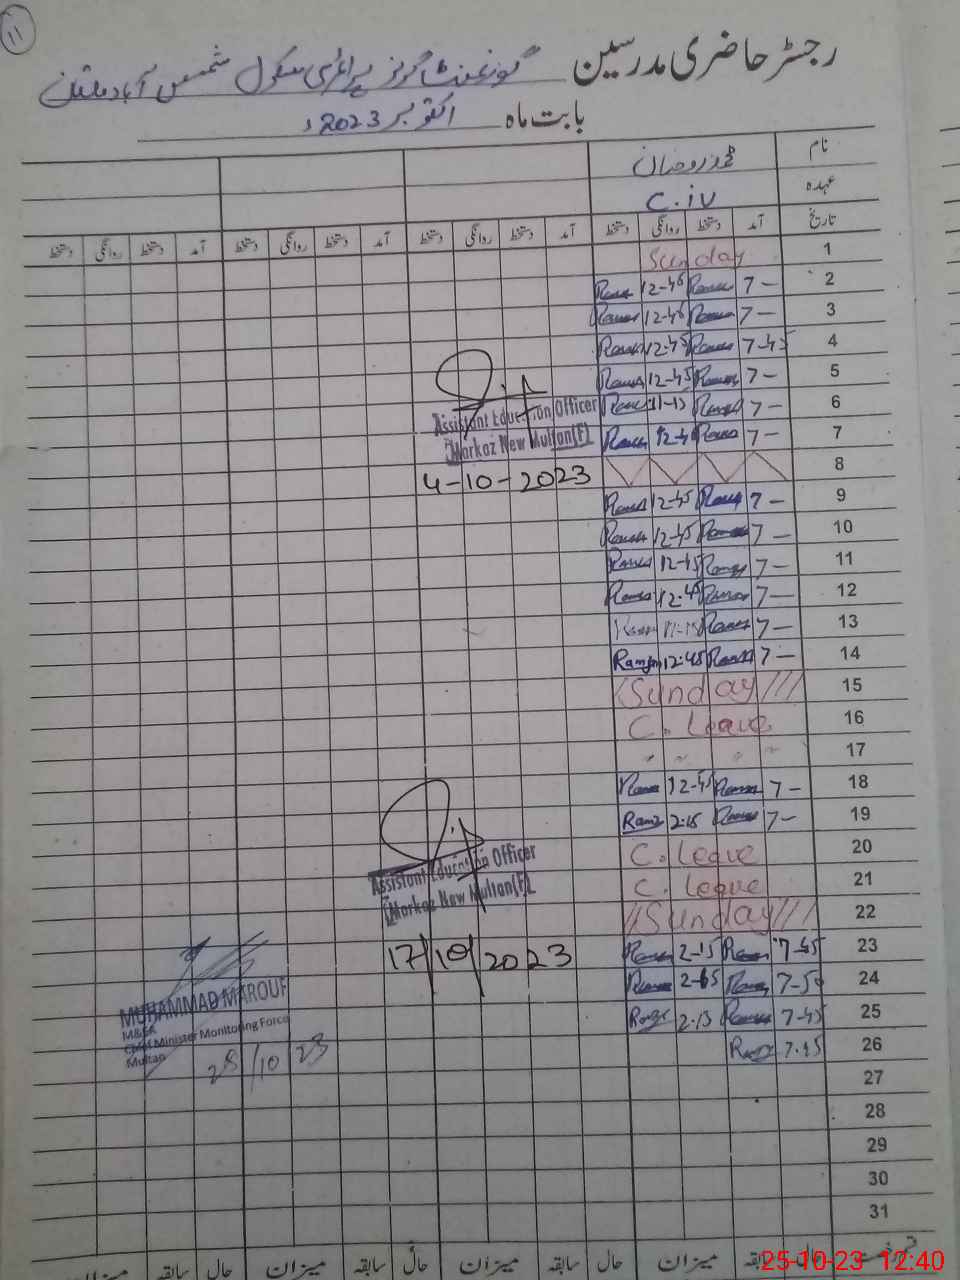 11
رجسٹر حاضری مدرسین گورنمنٹ گرلز پرائمری سکول شمس آباد ملتان
بابت ماہ اکتوبر 2023ء
نام محمد رمضان
عہدہ C.iv
تاریخ آمد دستخط روانگی دستخط آمد دستخط روانگی دستخط آمد دستخط روانگی دستخط آمد دستخط روانگی دستخط
1 Sunday
2 7 - 12-45
3 7 - 12-45
4 7-45 12-45
5 7 - 12-45
6 7 - 11-15
7 7 - 12-4
Assistant Education Officer
Markaz New Multan(F)
8
4-10-2023
9 7 - 12-45
10 7 - 12-45
11 7 - 12-45
12 7 - 12-45
13 7 - 11-15
14 7 - 12-45
15 Sunday
16 C. Leave
17 " " " "
18 7 - 12-45
19 7 - 2-15
20 C. Leave
21 C. Leave
Assistant Education Officer
Markaz New Multan(F)
22 Sunday
17/10/2023
23 7-45 2-15
24 7-50
25 7-45 2-15
MUHAMMAD MAROUF
M&EA
Chief Minister Monitoring Force
Multan
26 7-45
27
28
29
30
31
حال سابقہ میزان حال سابقہ میزان حال سابقہ میزان حال سابقہ میزان
25-10-23 12:40